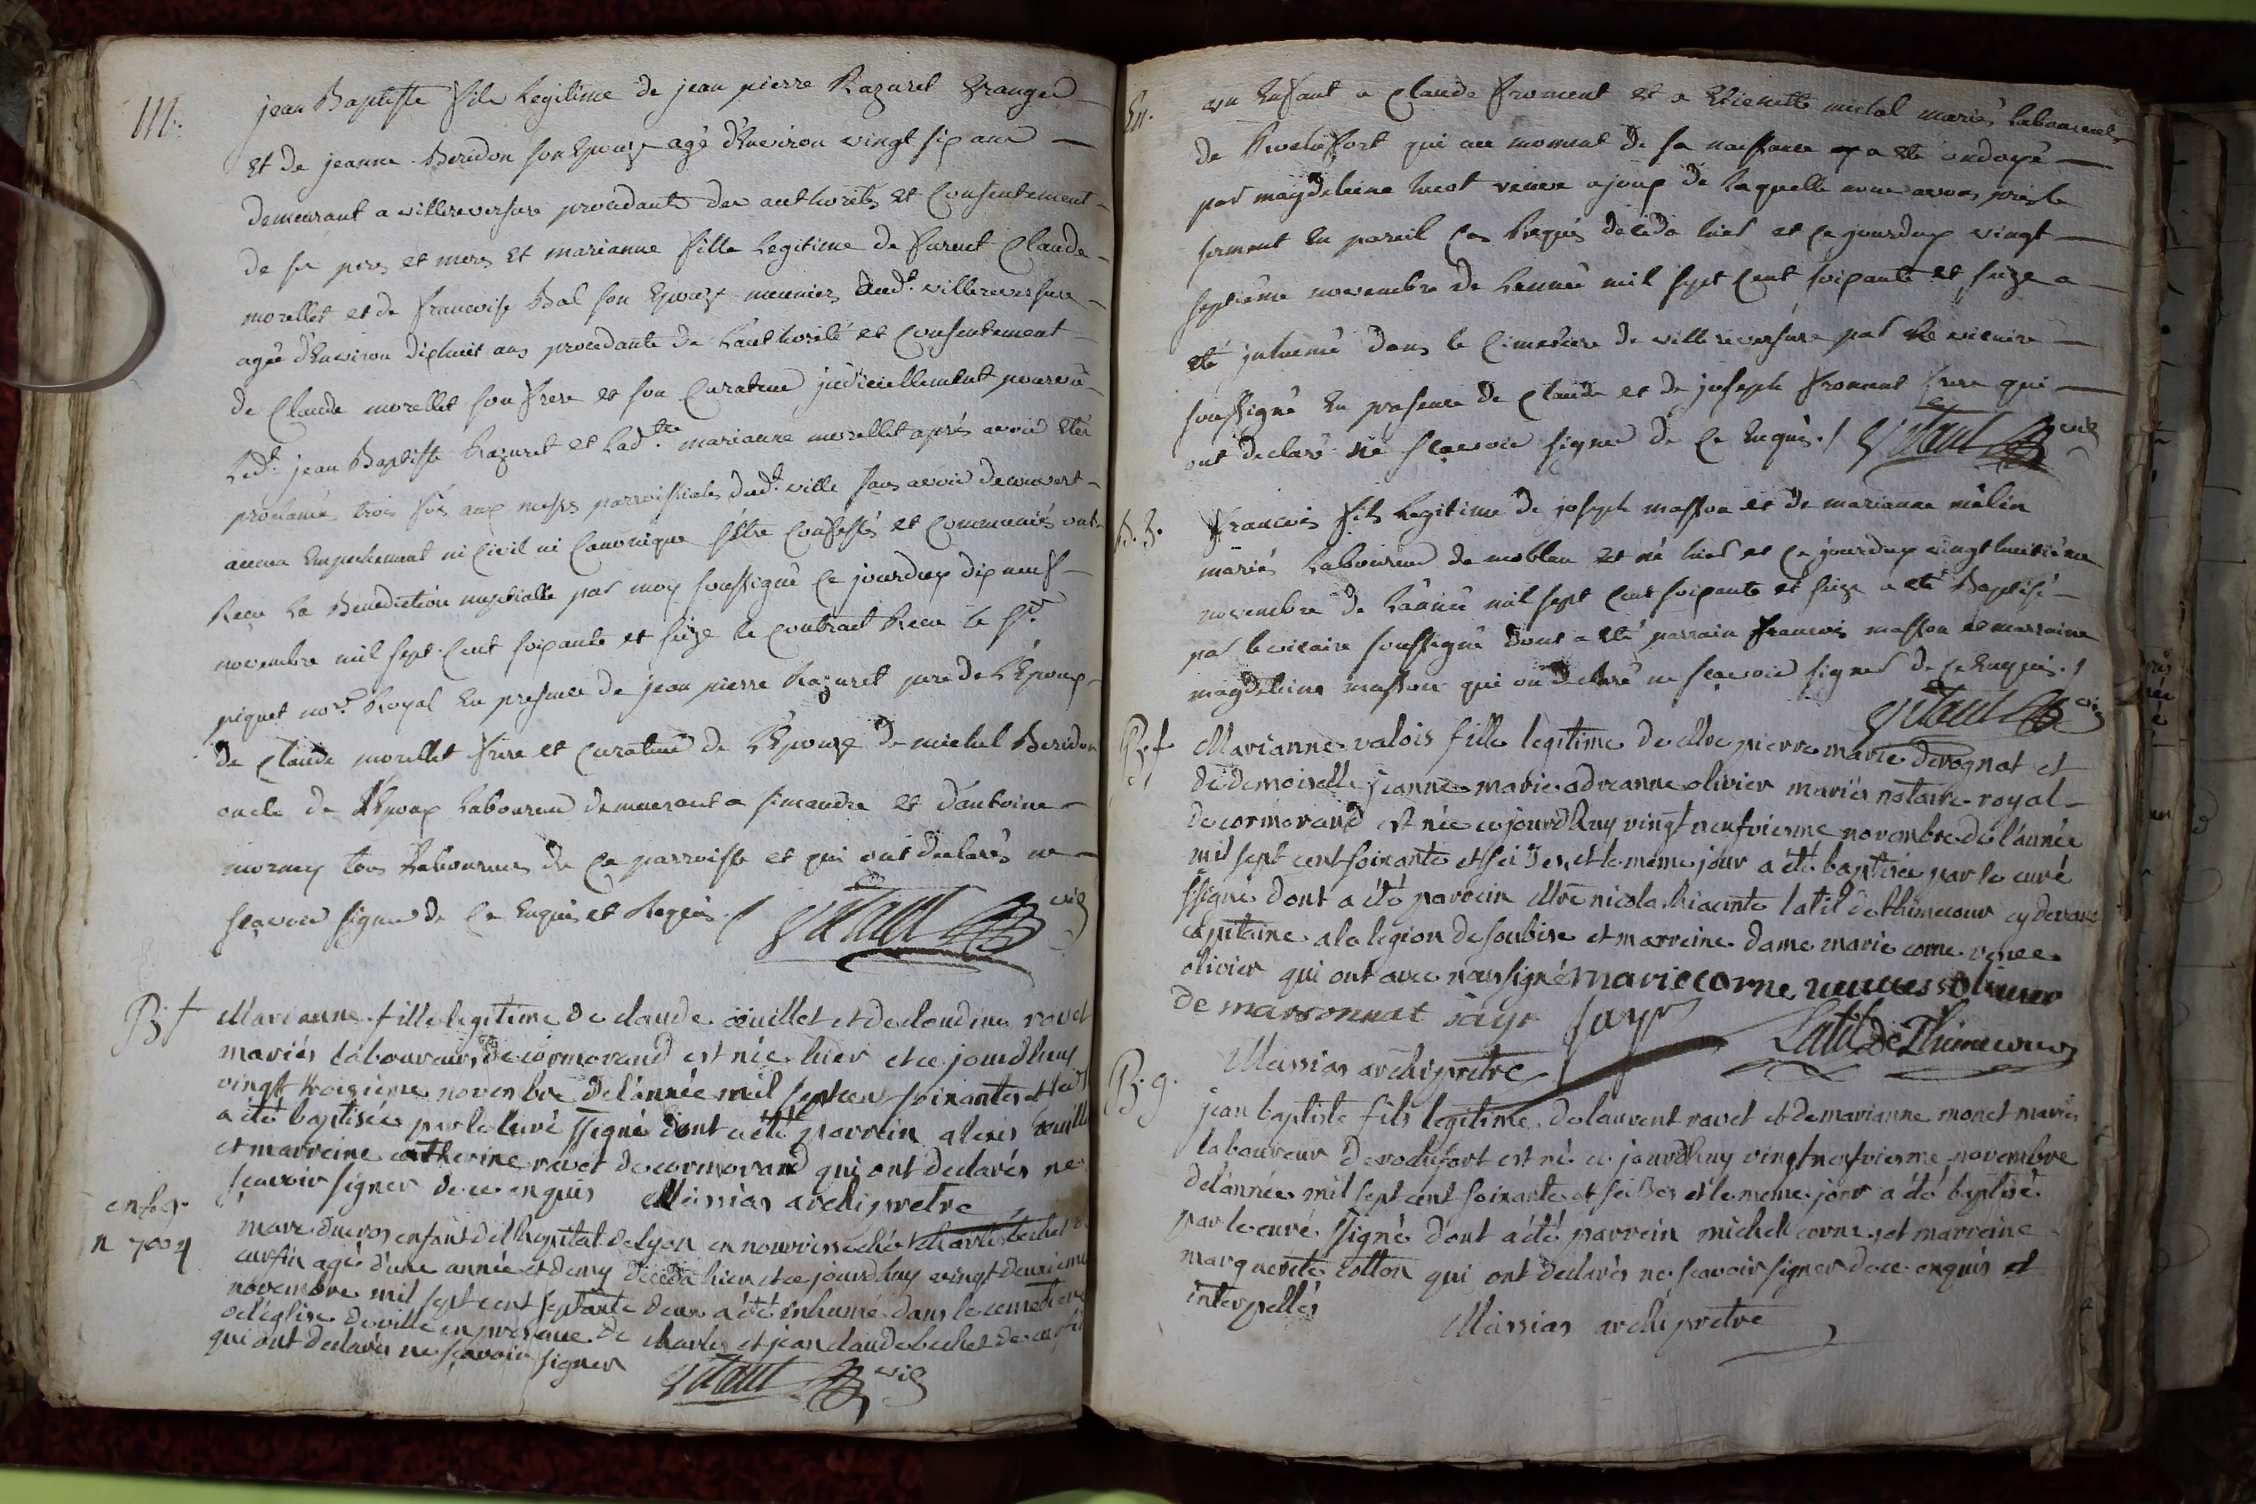 M.
jean Baptiste fils Legitime de jean pierre Razuret Granger
et de jeanne Beridon son Epouse agé d'Environ vingt six ans
demeurant a villereversure procedants des authorités et Consentement
de ses pere et mere et marianne fille Legitime de Claude
morellet et de francoise Bal son Epouse meunier dud.t villereversure
agée d'Environ dixhuit ans procedante de L'authorité et Consentement
de Claude morellet son frere et son Curateur judiciellement pourvû
Led.t jean Baptiste Razuret et Lad.tte marianne morellet aprés avoir étés
proclamés trois fois aux messes parroissiales dud.t ville sans avoir decouvert
aucun Empechement ni Civil ni Canonique s'étre Confessés et Communiés ont
Recu La Benediction nuptialle par moy soussigné Ce jourduy dix neuf
novembre mil sept Cent soixante et seize le Contract Recu le S.r
piquet no.re Royal En presence de jean pierre Razuret pere de L'Epoux
de Claude morellet frere et curateur de L'Epouse de michel Beridon
oncle de L'Epoux Laboureur demeurant a simandre et d'antoine
mornay tous Laboureurs de Ce parroisse et qui ont declarés ne
scavoir signer de Ce Enquis et Requis
vic
B f
Marianne fille legitime de claude œuillet et de claudine ravet
mariés laboureurs de cormorand est née hier et ce jourdhuy
vingt troisieme novembre de l'année mil sept cent soixante et seize
a été baptisée par le curé ssigné dont a été parrein alexis œuillet
et marreine catherine ravet de cormorand qui ont declarés ne
scavoir signer de ce enquis Massias archipretre
en. g.
n 7009
marc ducros enfant de l'hopital de lyon en nourrisse chés charles bechet
curfin agé d'une année et demy deceda hier et ce jourdhuy vingt deuxieme
novembre mil sept cent septante deux a été inhumé dans le cemetiere
de l'eglise de ville en presence de charles et jean claude bechet de
qui ont declarés ne scavoir signer
vic
En.
un Enfant a Claude froment et a Etienette michel mariés Laboureurs
de Rochefort qui au moment de sa naissance a été ondoyé
par magdeleine veuve ajoux de laquelle nous avons pris le
serment En pareil Cas Requis deceda hier et Ce jourduy vingt
septième novembre de L'année mil sept Cent soixante et seize a
été inhumé dans le Cimetiere de villereversure par le vicaire
soussigné En presence de Claude et de joseph froment frere qui
ont declaré ne scavoir signer de Ce Enquis
vic
B. g.
francois fils Legitime de joseph masson et de marianne mélin
mariés Laboureur de moblan et né hier et Ce jourduy vingt huitième
novembre de L'année mil sept Cent soixante et seize a été Baptisé
par le vicaire soussigné dont a été parrain francois masson et marraine
magdeleine masson qui on declaré ne scavoir signer de Ce Enquis
vic
B. f
Marianne valois fille legitime de Mre pierre marie derognat et
de demoiselle jeanne marie adreanne olivier mariés notaire royal
de cormorand est née ce jourdhuy vingt neufvieme novembre de l'année
mil sept cent soixante et seizes, et le meme jour a été baptisée par le curé
ssigné dont a été parrein Mre nicola hiacinte latil de thimecour cy devant
capitaine a la legion de soubise et marreine dame marie corne veuve
olivier qui ont avec nous signé marie corne veuve olivier
de marsonnat
Latil de Thimecour
Massias archipretre
B. g.
jean baptiste fils legitime de laurent ravet et de marianne monet mariés
laboureur de rochefort est né ce jourdhuy vingt neufvieme novembre
de l'année mil sept cent soixante et seizes et le meme jour a été baptisé
par le curé ssigné dont a été parrein michel corne, et marreine
marguerite cotton qui ont declarés ne scavoir signer de ce enquis et
interpellés
Massias archipretre